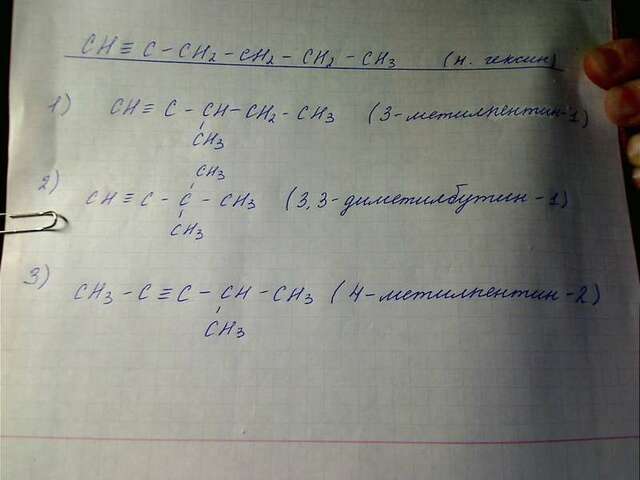 CH ≡ C - CH2 - CH2 - CH2 - CH3 (н. гексин)
1) CH ≡ C - CH - CH2 - CH3 (3-метилпентин-1)
CH3
CH3
2) CH ≡ C - C - CH3 (3,3-диметилбутин-1)
CH3
3) CH3 - C ≡ C - CH - CH3 (4-метилпентин-2)
CH3